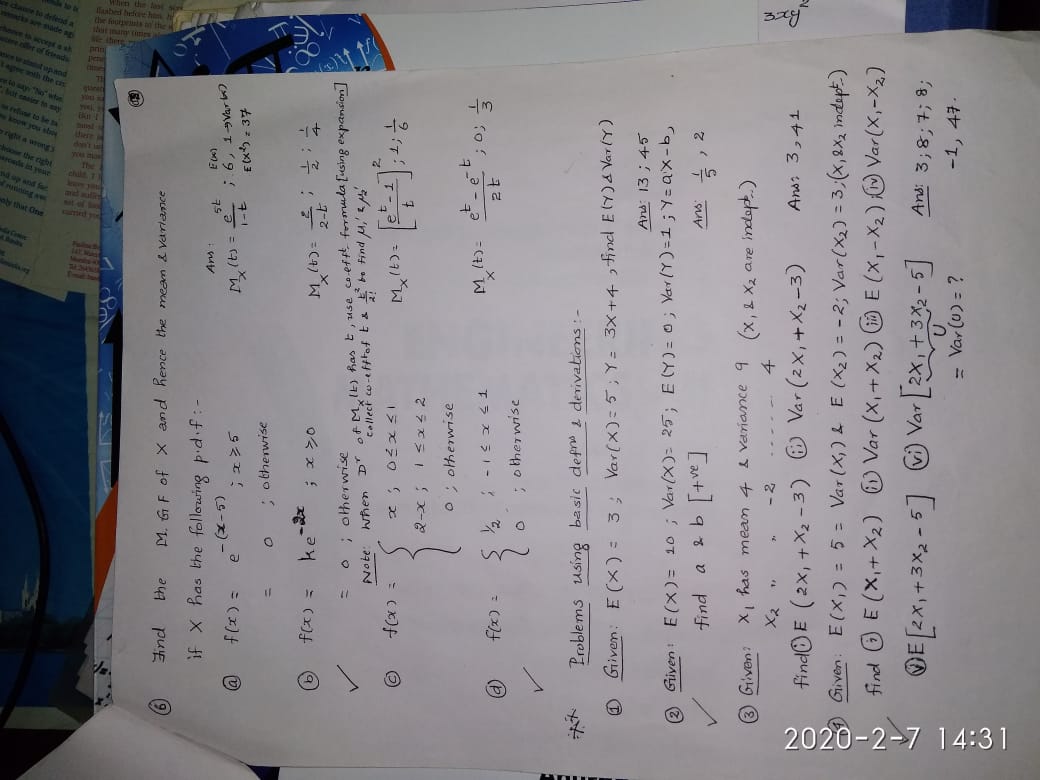 ⑥ Find the M.GF of X and hence the mean & variance
if X has the following p.d.f :-
ⓐ f(x) = e^-(x-5) ; x ≥ 5
= 0 ; otherwise
Ans: M_X(t) = e^5t / 1-t ; 6, 1→Var(x)
E(x)
E(x²) = 37
ⓑ f(x) = ke^-2x ; x ≥ 0
M_X(t) = 2 / 2-t ; 1/2 ; 1/4
= 0 ; otherwise
Note: When Dr of M_X(t) has t, use co-efft. formula [using expansion]
collect co-efft of t & t²/2! to find μ₁' & μ₂'
ⓒ f(x) = { x ; 0 ≤ x ≤ 1
2-x ; 1 ≤ x ≤ 2
0 ; otherwise
M_X(t) = [e^t - 1 / t]² ; 1 ; 1/6
ⓓ f(x) = { 1/2 ; -1 ≤ x ≤ 1
0 ; otherwise
M_X(t) = e^t - e^-t / 2t ; 0 ; 1/3
Problems using basic defns & derivations :-
① Given: E(X) = 3 ; Var(X) = 5 ; Y = 3X+4 , find E(Y) & Var(Y)
Ans: 13 ; 45
② Given: E(X) = 10 ; Var(X) = 25 ; E(Y) = 0 ; Var(Y) = 1 ; Y = aX-b,
find a & b [+ve]
Ans: 1/5 , 2
③ Given: X₁ has mean 4 & variance 9 (X₁ & X₂ are indept.)
X₂ " " -2 ----- 4
find ⓘ E (2X₁ + X₂ - 3) ⓘⓘ Var (2X₁ + X₂ - 3) Ans: 3, 41
④ Given: E(X₁) = 5 = Var(X₁) & E(X₂) = -2 ; Var(X₂) = 3 ; (X₁ & X₂ indept.)
find (i) E(X₁ + X₂) (ii) Var (X₁ + X₂) (iii) E (X₁ - X₂) ; (iv) Var(X₁ - X₂)
(v) E[2X₁ + 3X₂ - 5] (vi) Var [2X₁ + 3X₂ - 5] Ans: 3; 8; 7; 8;
U
= Var(U) = ?
-1, 47.
3xy²
2020-2-7 14:31